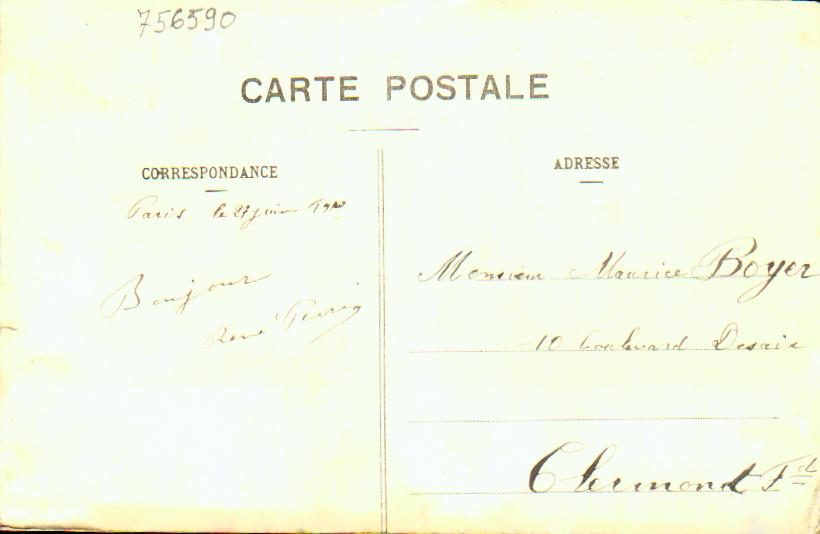 756590
CARTE POSTALE
CORRESPONDANCE
Paris le 27 juin 1910
Bonjour
René Perrin
ADRESSE
Monsieur Maurice Boyer
10 boulevard Desaix
Clermond Fd